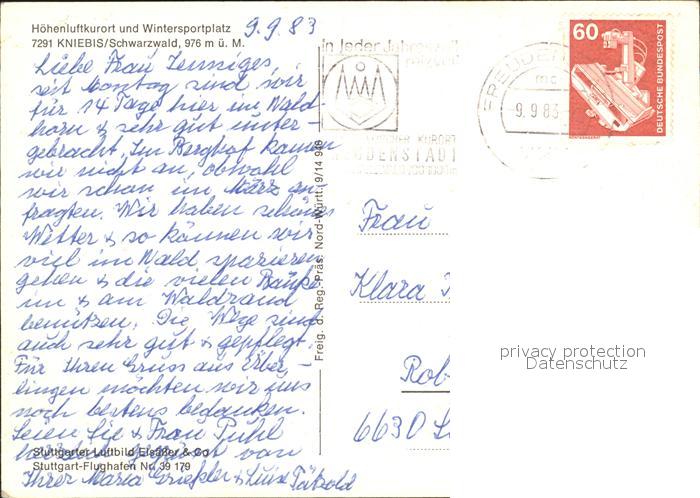 Höhenluftkurort und Wintersportplatz
7291 KNIEBIS/Schwarzwald, 976 m ü. M.
9.9.83
Liebe Frau
seit Sonntag sind wir
für 14 Tage hier im Wald-
horn & sehr gut unter-
gebracht. Im Berghof kamen
wir nicht an, obwohl
wir schon im März an-
fragten. Wir haben schönes
Wetter & so können wir
viel im Wald spazieren
gehen & die vielen Bänke
im & am Waldrand
benützen. Die Wege sind
auch sehr gut & gepflegt.
Für Ihren Gruss aus Über-
lingen möchten wir uns
noch bestens bedanken.
Seien Sie & Frau Pühl
herzlich gegrüsst von
Ihrer Maria &
Stuttgarter Luftbild Elsäßer & Co
Stuttgart-Flughafen Nr. 39 179
Freig. d. Reg.-Präs. Nord-Württ. 9/14 948
in jeder Jahreszeit
KURORT
FREUDENSTADT
FREUDEN
mc
9.9.83
60
DEUTSCHE BUNDESPOST
Frau
Klara
Rob
6630
privacy protection
Datenschutz